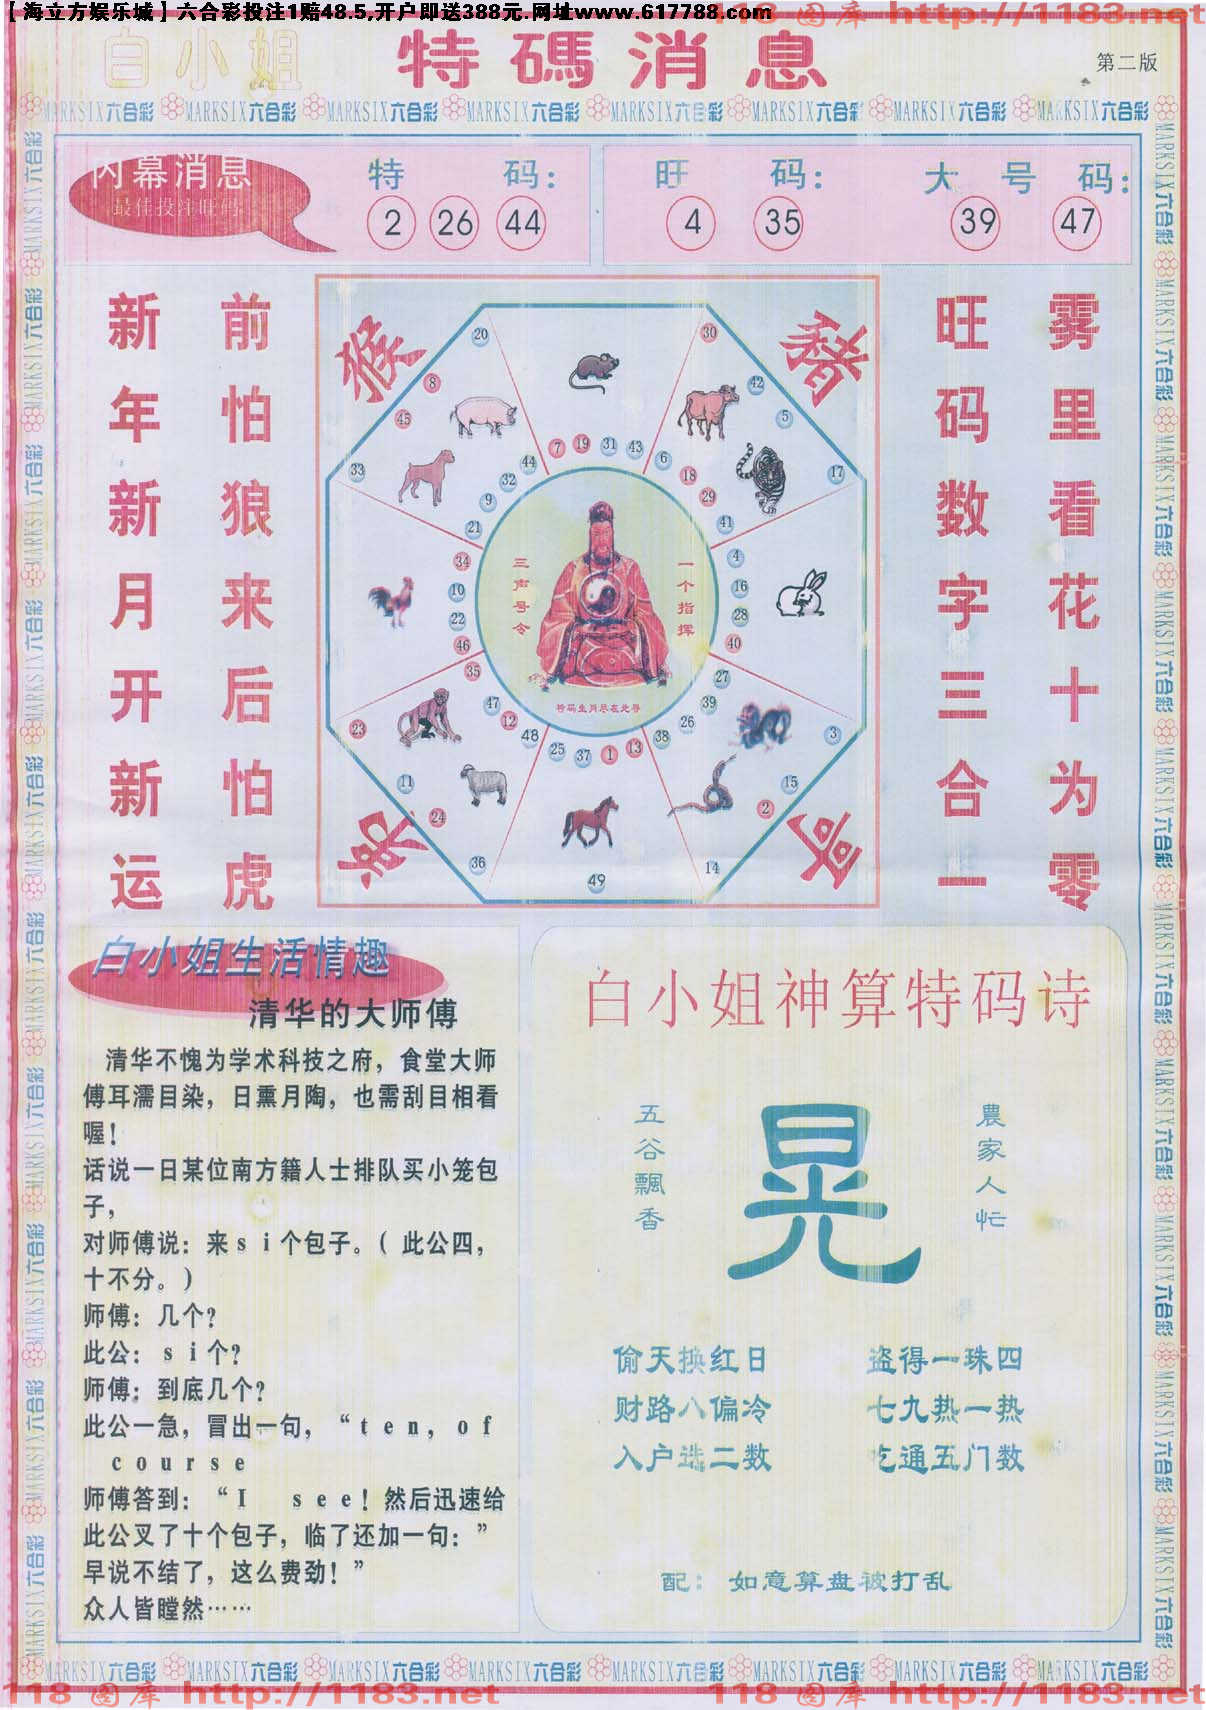 【海立方娱乐城】六合彩投注1赔48.5,开户即送388元.网址www.617788.com
118 图库 http://1183.net
白小姐 特碼消息
第二版
MARKSIX六合彩 MARKSIX六合彩 MARKSIX六合彩 MARKSIX六合彩 MARKSIX六合彩 MARKSIX六合彩 MARKSIX六合彩 MARKSIX六合彩
内幕消息
最佳投注旺码
特 码:
2 26 44
旺 码:
4 35
大 号 码:
39 47
新年新月开新运
前怕狼来后怕虎
旺码数字三合一
雾里看花十为零
猴
豬
20
30
8
42
45
5
33
17
7 19 31 43
44
32
9
21
6
18
29
41
34
10
22
46
4
16
28
40
35
47
12
48
27
39
26
38
25 37 1 13
23
11
24
36
3
15
2
14
49
三声号令
一个指挥
特码生肖尽在此寻
白小姐生活情趣
清华的大师傅
清华不愧为学术科技之府，食堂大师
傅耳濡目染，日熏月陶，也需刮目相看
喔！
话说一日某位南方籍人士排队买小笼包
子，
对师傅说：来si个包子。（此公四，
十不分。）
师傅：几个？
此公：si个？
师傅：到底几个？
此公一急，冒出一句，“ten，of
course
师傅答到：“I see！然后迅速给
此公叉了十个包子，临了还加一句：”
早说不结了，这么费劲！”
众人皆瞠然……
白小姐神算特码诗
五谷飄香
晃
農家人忙
偷天换红日 盗得一珠四
财路八偏冷 七九热一热
入户选二数 吃通五门数
配：如意算盘被打乱
MARKSIX六合彩 MARKSIX六合彩 MARKSIX六合彩 MARKSIX六合彩 MARKSIX六合彩 MARKSIX六合彩 MARKSIX六合彩 MARKSIX六合彩
118 图库 http://1183.net 118 图库 http://1183.net